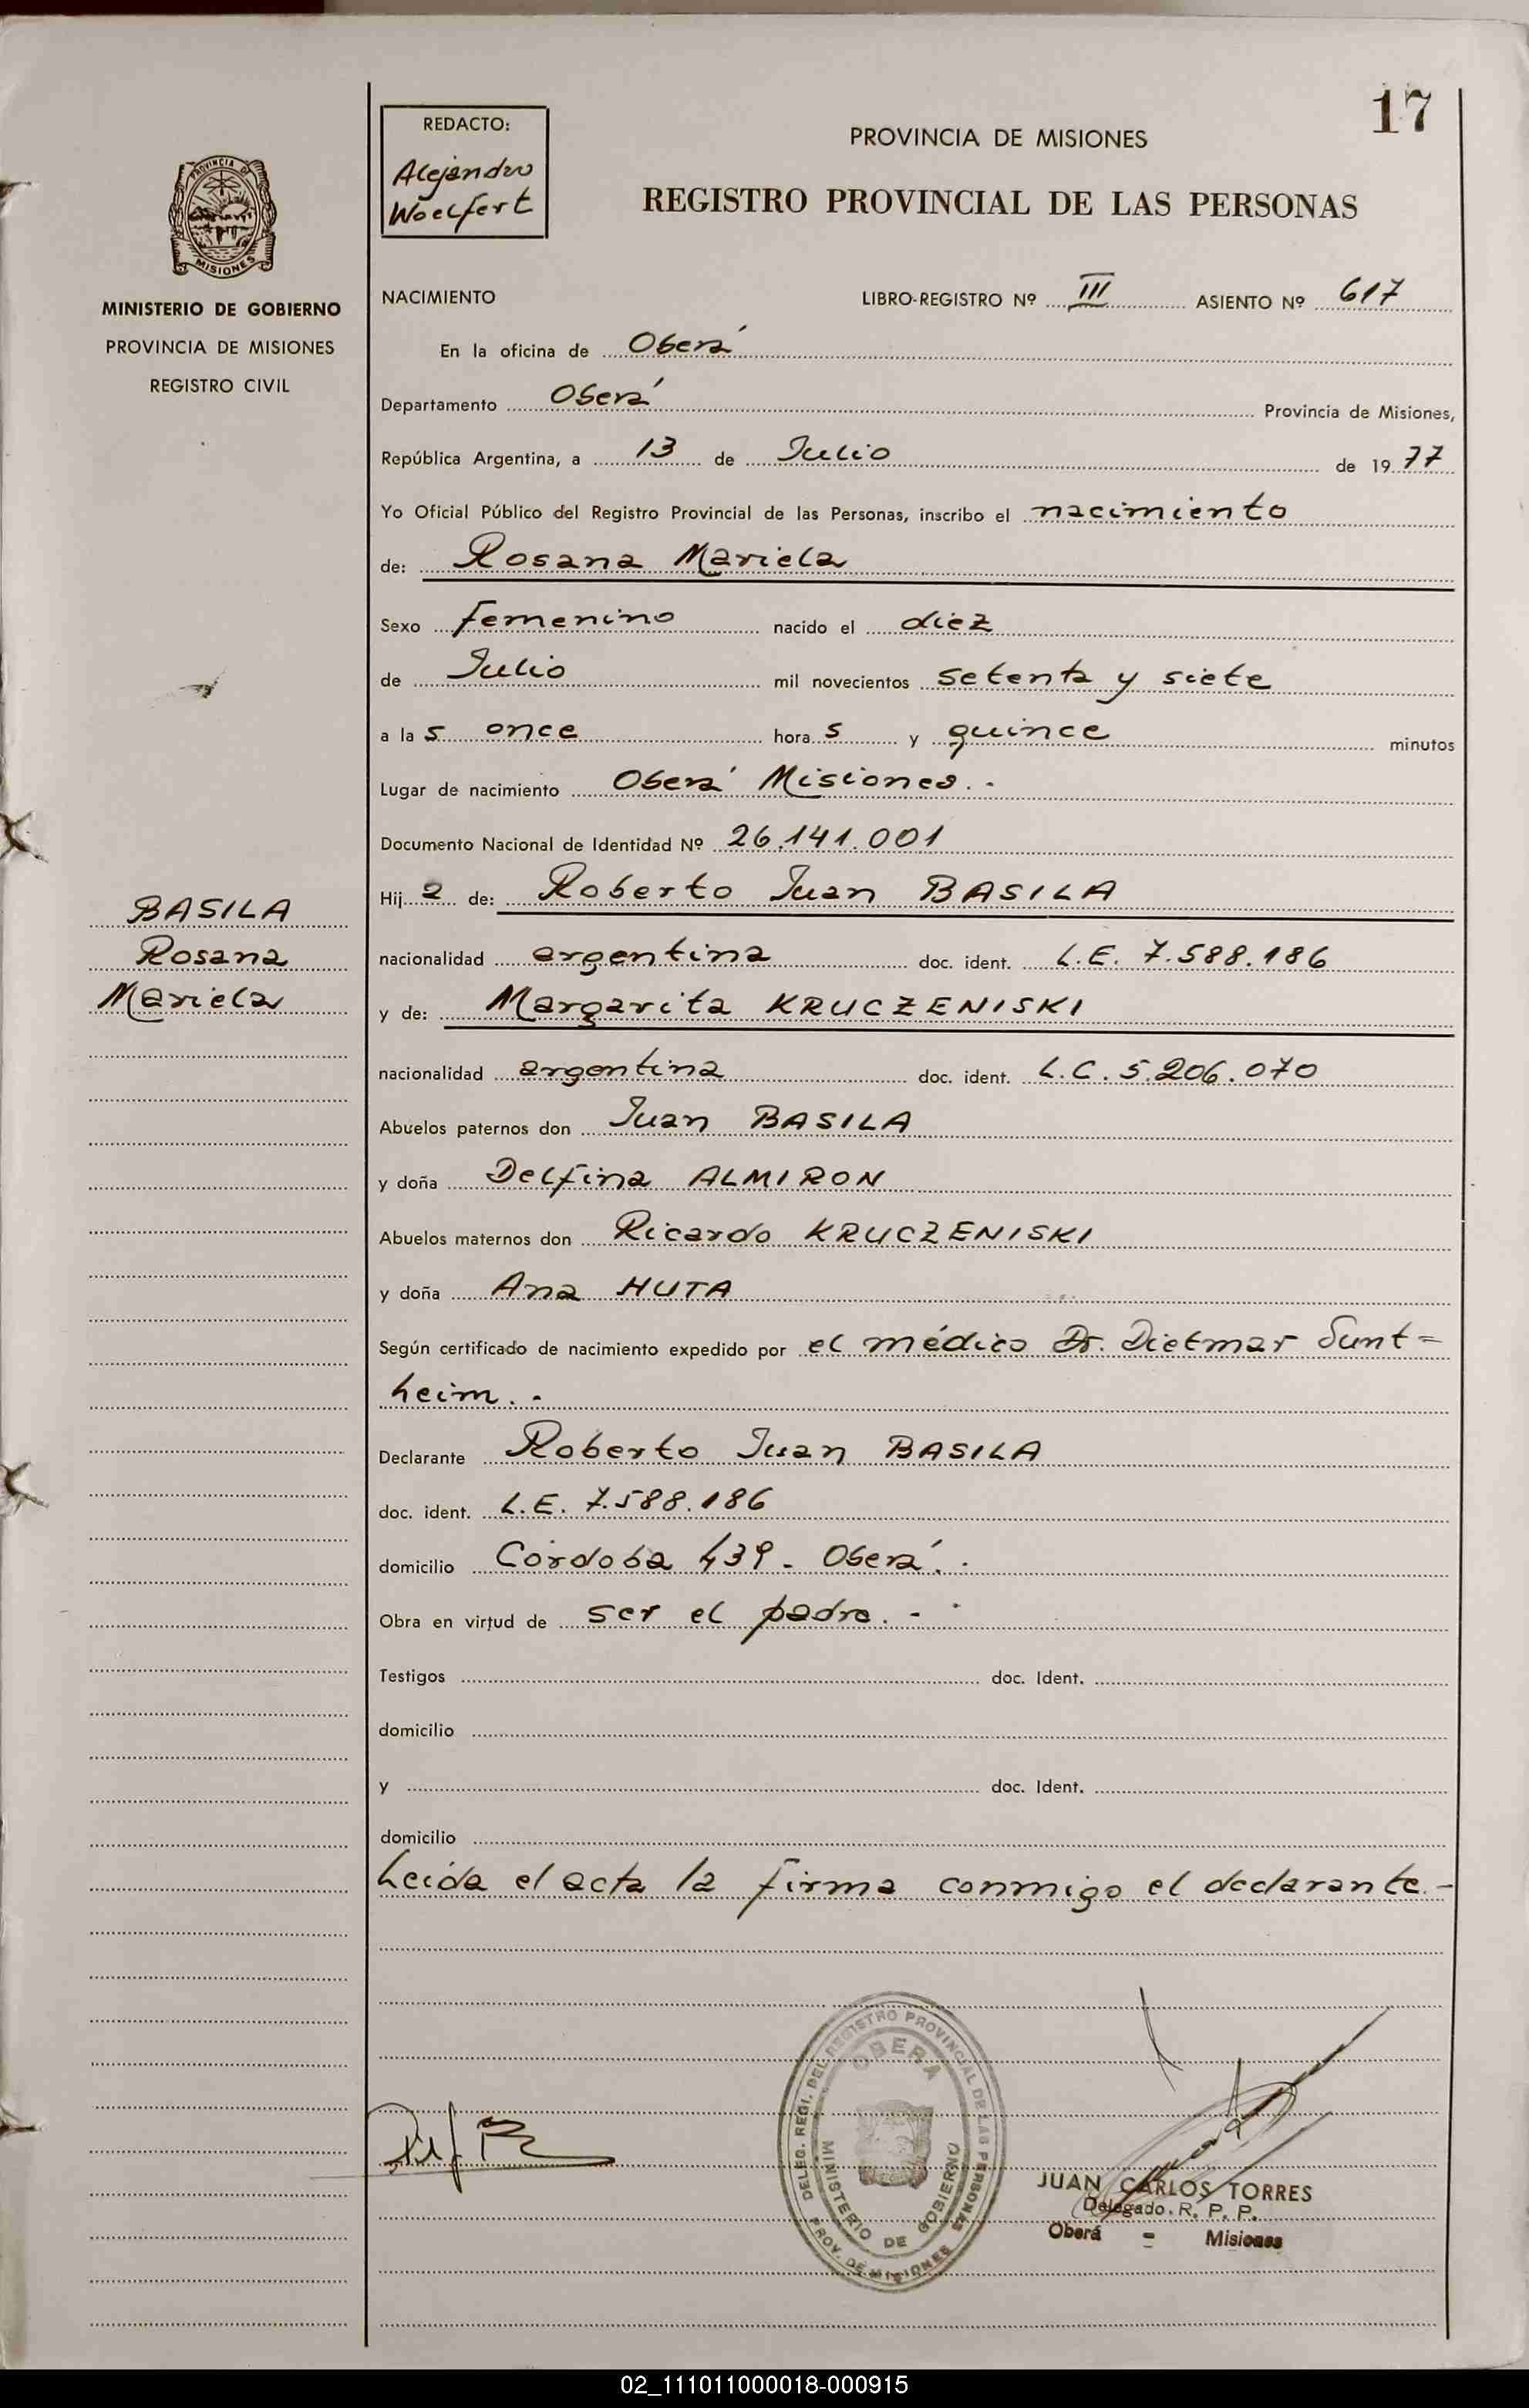 17
REDACTO:
Alejandro
Woelfert
PROVINCIA DE MISIONES
REGISTRO PROVINCIAL DE LAS PERSONAS
PROVINCIA DE
MISIONES
MINISTERIO DE GOBIERNO
PROVINCIA DE MISIONES
REGISTRO CIVIL
NACIMIENTO LIBRO-REGISTRO Nº III ASIENTO Nº 617
En la oficina de Oberá
Departamento Oberá Provincia de Misiones,
República Argentina, a 13 de Julio de 1977
Yo Oficial Público del Registro Provincial de las Personas, inscribo el nacimiento
de: Rosana Mariela
Sexo femenino nacido el diez
de Julio mil novecientos setenta y siete
a las once horas y quince minutos
Lugar de nacimiento Oberá Misiones.-
Documento Nacional de Identidad Nº 26.141.001
Hija de: Roberto Juan BASILA
nacionalidad argentina doc. ident. L.E. 7.588.186
y de: Margarita KRUCZENISKI
nacionalidad argentina doc. ident. L.C. 5.206.070
Abuelos paternos don Juan BASILA
y doña Delfina ALMIRON
Abuelos maternos don Ricardo KRUCZENISKI
y doña Ana HUTA
Según certificado de nacimiento expedido por el médico Dr. Dietmar Sunt=
heim.-
Declarante Roberto Juan BASILA
doc. ident. L.E. 7.588.186
domicilio Córdoba 439- Oberá.-
Obra en virtud de ser el padre.-
Testigos doc. Ident.
domicilio
y doc. Ident.
domicilio
Leída el acta la firma conmigo el declarante.-
BASILA
Rosana
Mariela
DELEG. REGI. DEL REGISTRO PROVINCIAL DE LAS PERSONAS
OBERA
MINISTERIO DE GOBIERNO
PROV. DE MISIONES
JUAN CARLOS TORRES
Delegado. R. P. P.
Oberá - Misiones
02_111011000018-000915